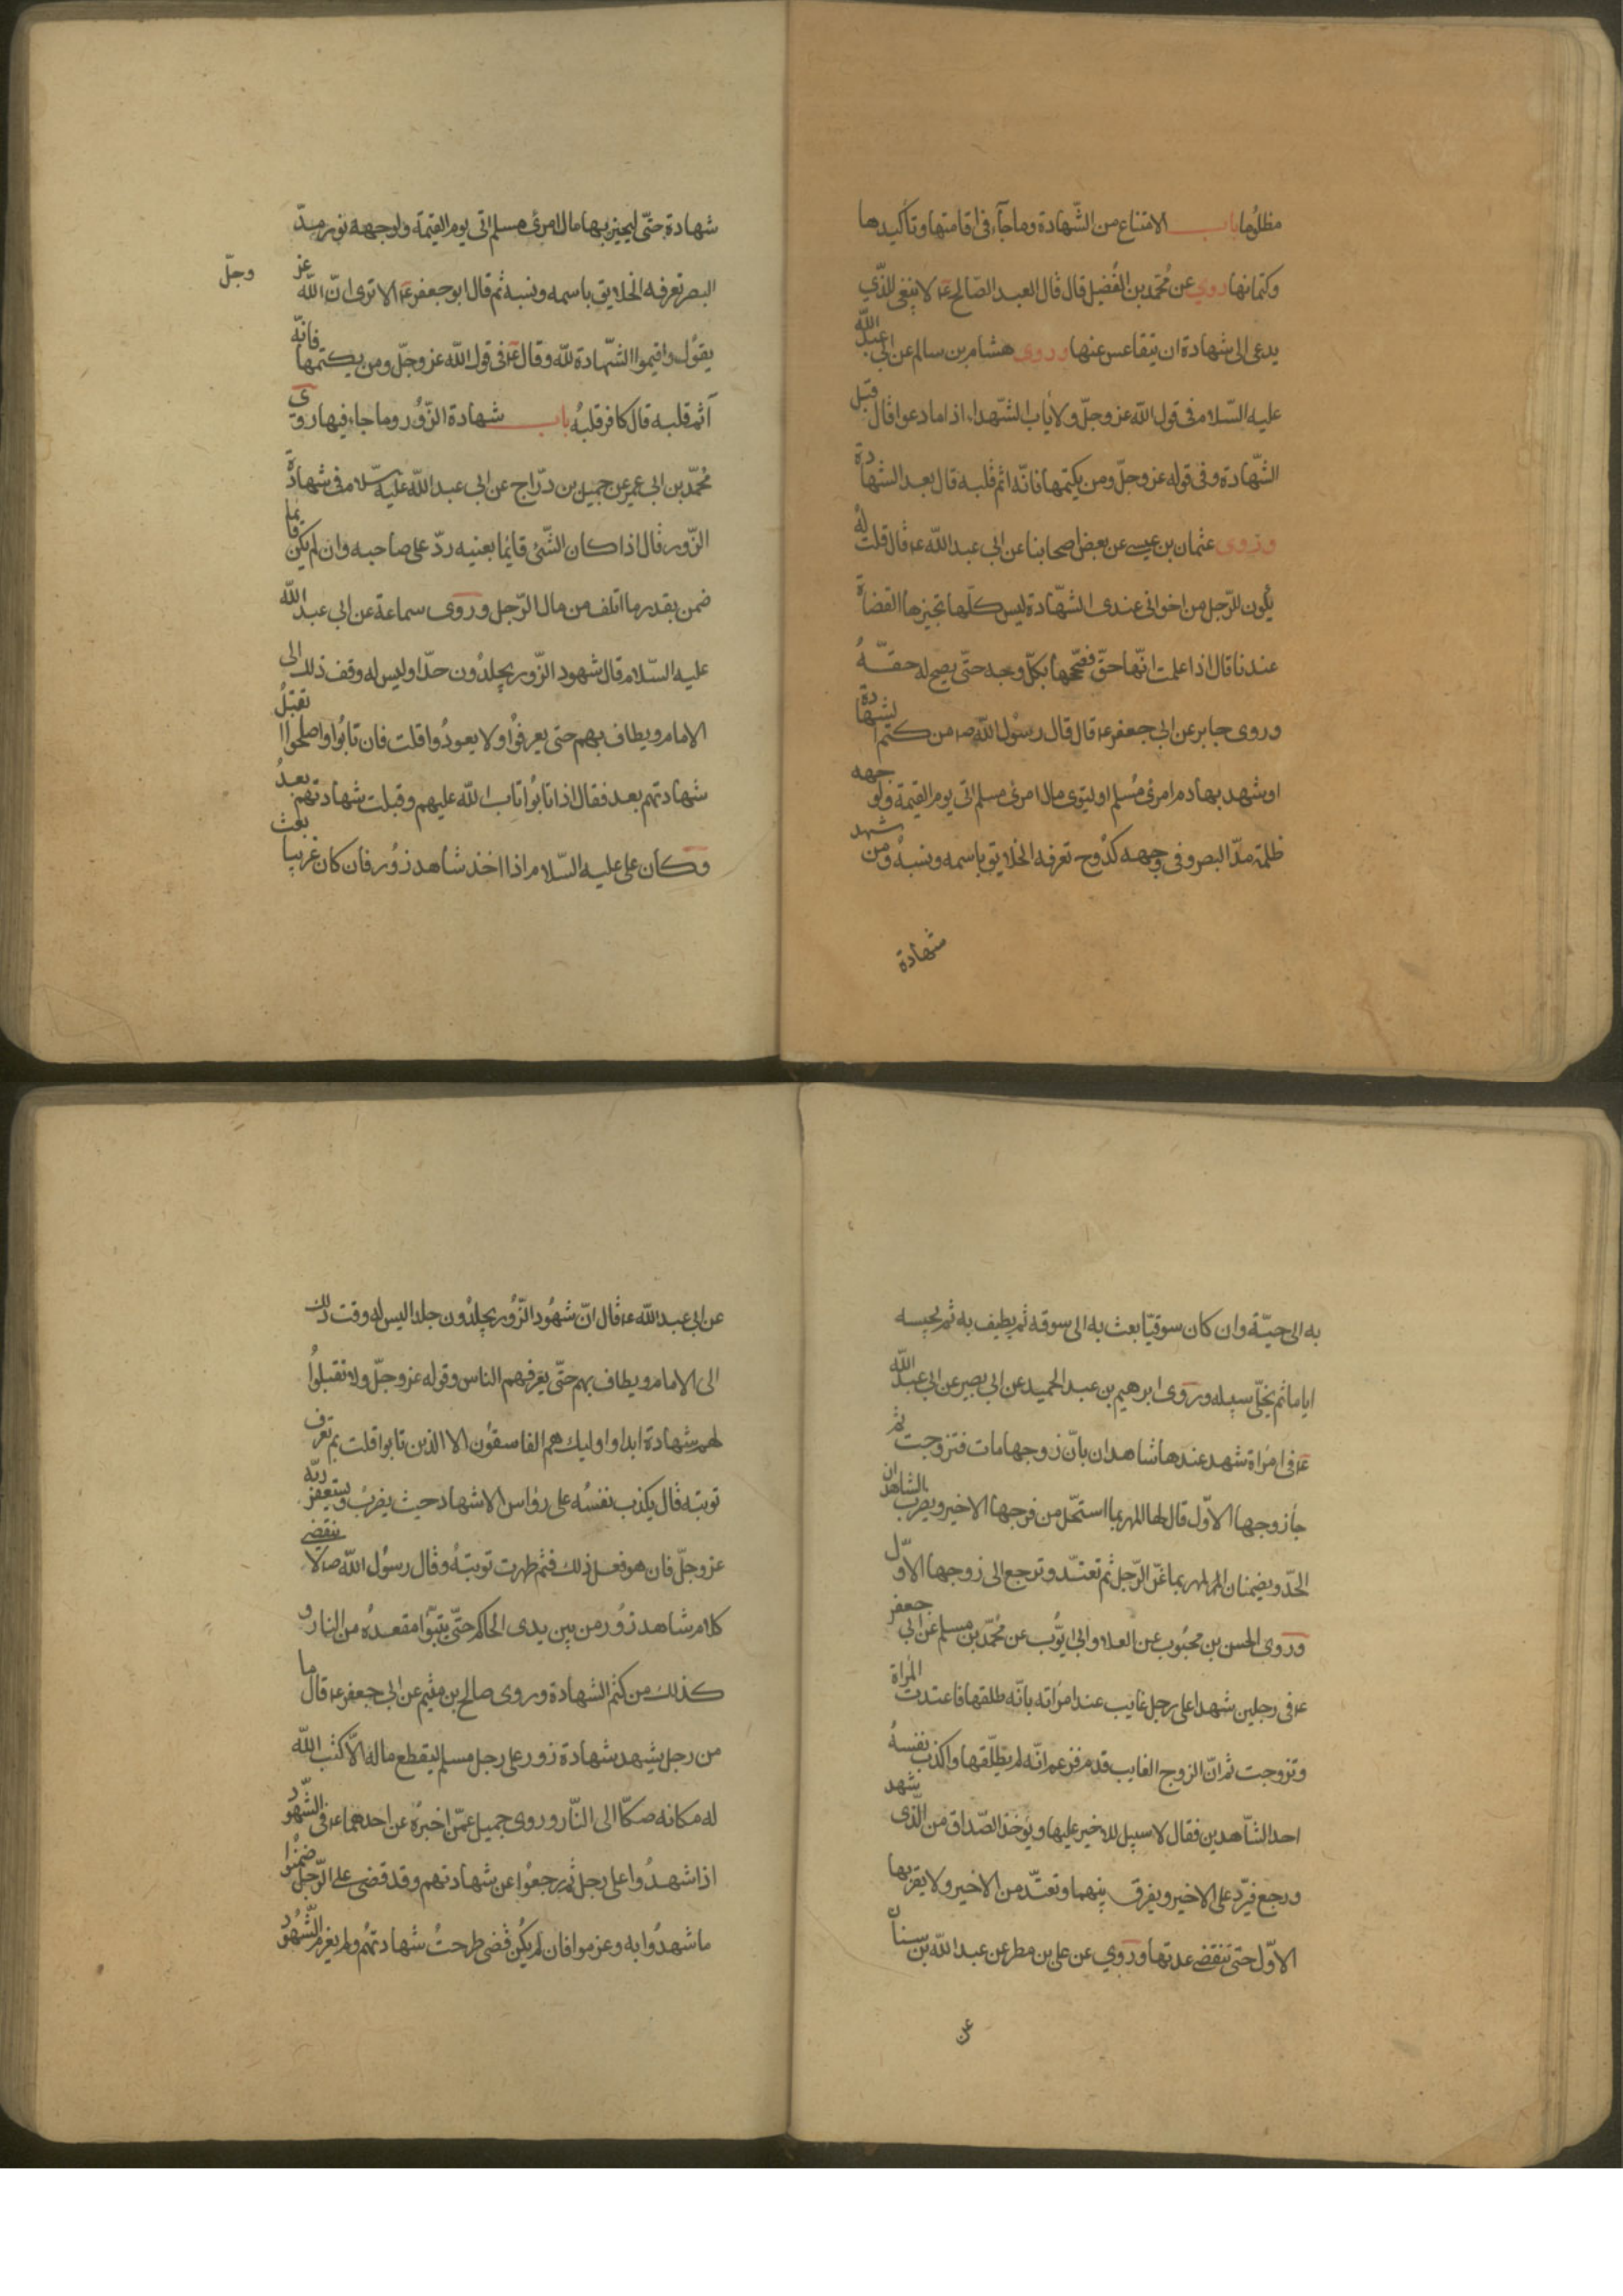 مظلوما باب الامتناع من الشّهادة وما جآء فى اقامتها وتأكيدها
وكتمانها روي عن مُحمّد بن الفُضيل قال قال العبد الصّالح ع لا ينبغى للذّي
يدعى الى شهادة ان يتقاعس عنها وروى هشام بن سالم عن ابى عبد الله
عليه السّلام فى قول الله عز وجلّ ولا يأب الشّهداء اذا ما دعوا قال قبل
الشّهادة وفى قوله عز وجلّ ومن يكتمها فانّه اثم قلبه قال بعد الشهادة
وروى عثمان بن عيسى عن بعض اصحابنا عن ابى عبد الله ع قال قلت لهُ
يكون للرّجل من اخوانى عندى الشهّادة ليس كلّها تجيزها القضاة
عندنا قال اذا علمت انّها حقّ فصحّحها بكلّ وجه حتّى يصح له حقّهُ
وروى جابر عن ابى جعفر ع قال قال رسُول الله ص من كتم لشهادة
او شهد بها ليهدر بها دم امرئ مُسلم او ليتوى مال امرئ مسلم اتى يوم القيمة ولوجهه
ظلمة مدّ البصر وفى وجهه كدُوح تعرفه الخلايق باسمه ونسبهُ ومن شهد
شهادة
شهادة حتّى ليجيز بها مال امرئ مسلم اتى يوم القيمة ولوجهه نور مدّ
البصر تعرفه الخلايق باسمه ونسبه ثم قال ابو جعفر ع الا ترى انّ الله عز
وجلّ
يقوُل واقيموا الشّهادة لله وقال ع فى قول الله عز وجلّ ومن يكتمها فانّه
آثم قلبه قال كافر قلبُه باب شهادة الزّوُر وما جاء فيها روى
مُحمّد بن ابى عمير عن جميل بن درّاج عن ابى عبد الله عليه السّلام فى شهادة
الزّور قال اذا كان الشّئ قايما بعينه ردّ على صاحبه وان لم يكن قايما
ضمن بقدر ما اتلف من مال الرّجل وروى سماعة عن ابى عبد الله
عليه السّلام قال شهود الزّور يجلدُون حدّا وليس له وقف ذلك الى
الامام ويطاف بهم حتى يعرفُوا ولا يعودُوا قلت فان تابُوا واصلحوُا اتقبلُ
شهادتهم بعد فقال اذا تابُوا تاب الله عليهم وقبلت شهادتهم بعدُ
وكان على عليه السّلام اذا اخذ شاهد زوُر فان كان غريبا بعث
به الى حيّه وان كان سوقيّا بعث به الى سوقه ثم يطيف به ثم يحبسه
اياما ثم يخلّى سبيله وروى ابرهيم بن عبد الحميد عن ابى بصير عن ابى عبد الله
ع فى امرُاة شهد عندها شاهدان بانّ زوجها مات فتزوجت ثم
جآ زوجها الاوّل قال لها المهر بما استحّل من فرجها الاخير ويضرب الشاهدان
الحدّ ويضمنان المهر بما غرّا الرّجل ثم تعتدّ وترجع الى زوجها الاوّل
وروى الحسن بن محبُوب عن العلاء وابى ايّوُب عن مُحمّد بن مسلم عن ابى جعفر
ع فى رجلين شهدا على رجل غايب عند امرُاته بانّه طلقها فاعتدت المراة
وتزوجت ثم انّ الزوج الغايب قدم فزعم انّه لم يطلّقها واكذب نفسهُ
احد الشّاهدين فقال لا سبيل للاخير عليها ويوخذ الصّداق من الّذى شهد
ورجع فيردّ على الاخير ويفرق بينهما وتعتدّ من الاخير ولا يقربها
الاوّل حتى تنقضى عدتها وروي عن على بن مطر عن عبد الله بن سنان
عن
عن ابى عبد الله ع قال انّ شهُود الزّوُر يجلدُون جلدا ليس له وقت ذلك
الى الامام ويطاف بهم حتّى يعرفهم الناس وقوله عز وجلّ ولا تقبلُوا
لهم شهادة ابدا واوليك هم الفاسقوُن الا الذين تابوا قلت بم تعرف
توبته قال يكذب نفسهُ على رؤاس الاشهاد حيث يضربُ ويستغفر ربّه
عز وجلّ فان هو فعل ذلك فثم ظهرت توبتهُ وقال رسوُل الله ص لا ينقضى
كلام شاهد زوُر من بين يدى الحاكم حتّى يتبوّا مقعدهُ من النار و
كذلك من كتم الشهادة وروى صالح بن ميثم عن ابى جعفر ع قال ما
من رجل يشهد شهادة زور على رجل مسلم ليقطع ماله الّا كتب الله
له مكانه صكّا الى النّار وروى جميل عمّن اخبرهُ عن احدهما ع فى الشّهود
اذا شهدُوا على رجل ثم رجعُوا عن شهادتهم وقد قضى على الرّجل ضمنُوا
ما شهدُوا به وغرموا فان لم يكُن قضى طرحتُ شهادتهُم ولم يغرم الشّهُود